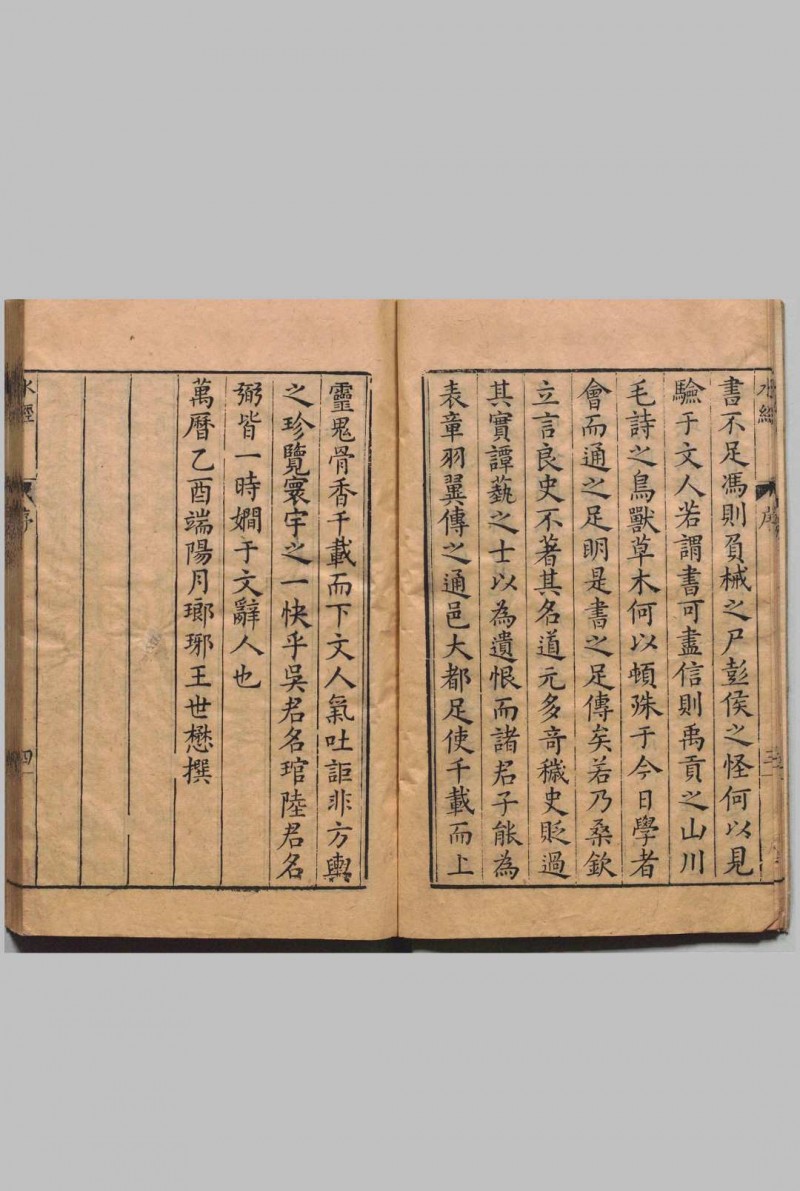 水經
序
三
書不足馮則負械之尸彭侯之怪何以見
驗于文人若謂書可盡信則禹貢之山川
毛詩之鳥獸草木何以頓殊于今日學者
會而通之足明是書之足傳矣若乃桑欽
立言良史不著其名道元多奇穢史貶過
其實譚藝之士以為遺恨而諸君子能為
表章羽翼傳之通邑大都足使千載而上
靈鬼骨香千載而下文人氣吐詎非方輿
之珍覽寰宇之一快乎吳君名琯陸君名
弼皆一時嫺于文辭人也
萬曆乙酉端陽月瑯琊王世懋撰
水經
序
四